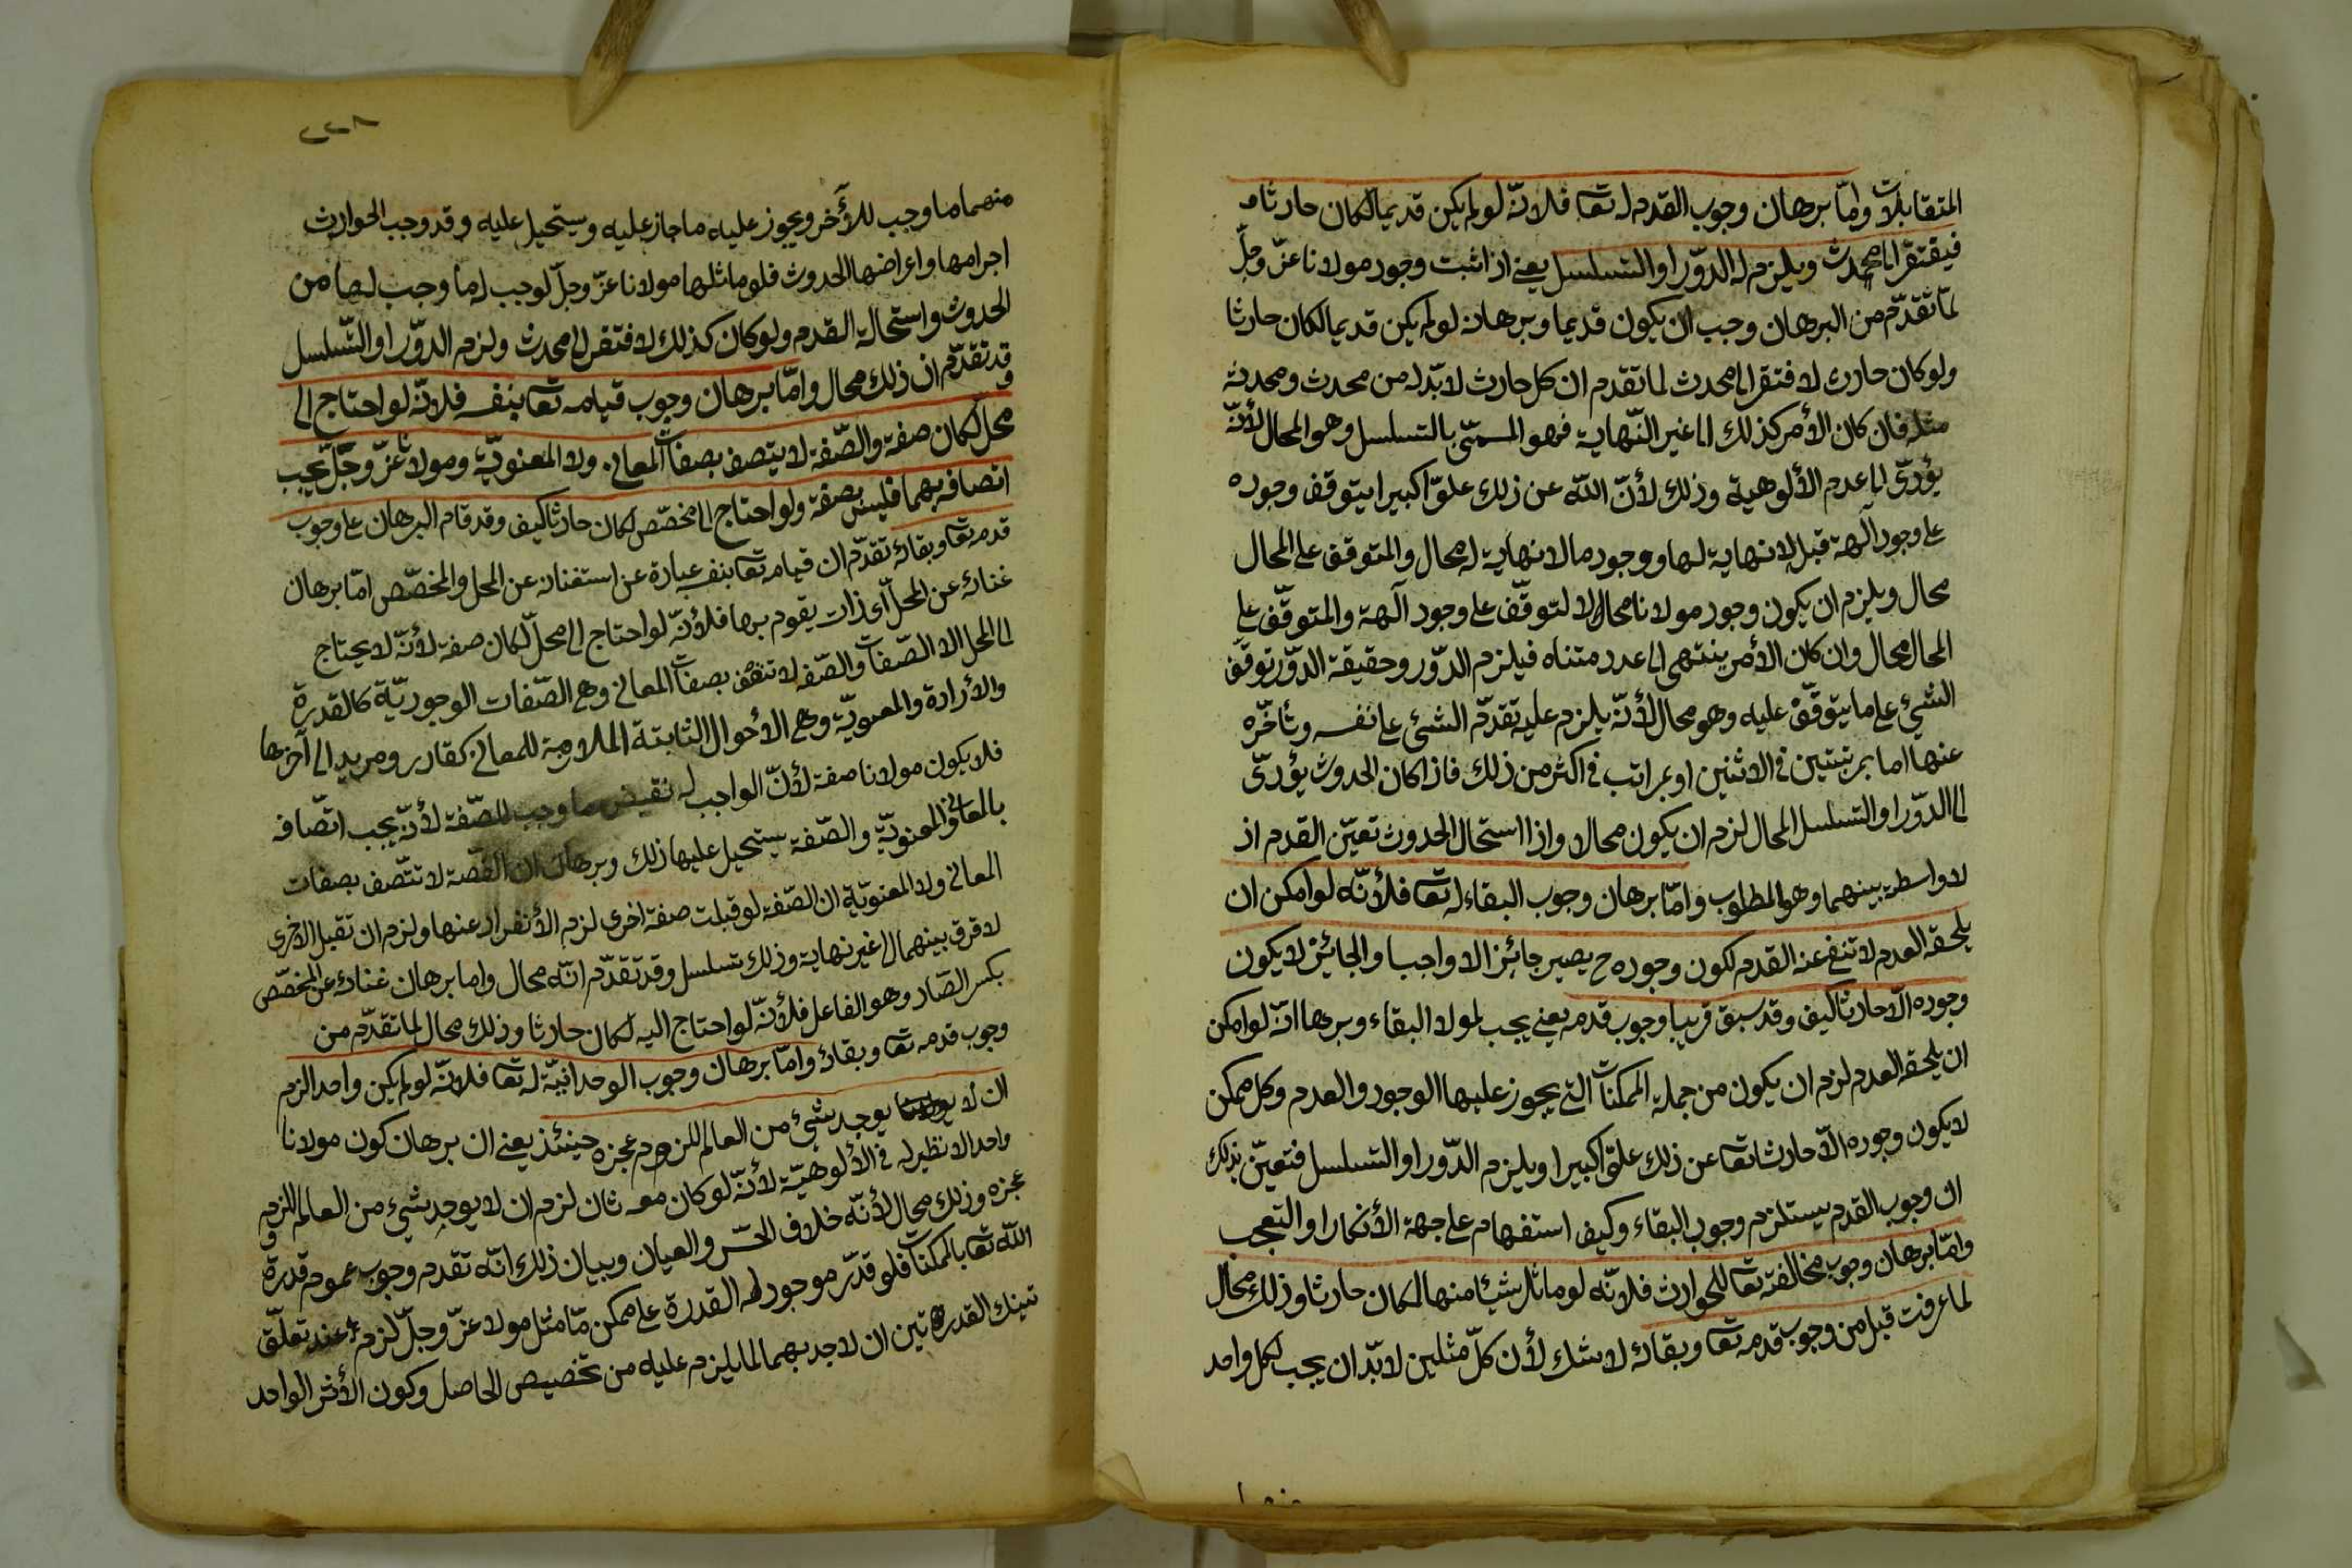 المتقابلات وامّا برهان وجوب القدم له تعا فلانّه لو لم يكن قديما لكان حادثا
فيفتقر الى محدث ويلزم له الدّور او التسلسل يعني اذا ثبت وجود مولانا عزّ وجلّ
لما تقدّم من البرهان وجب ان يكون قديما وبرهانه لو لم يكن قديما لكان حادثا
ولو كان حادث لافتقر الى محدث لما تقدم ان كل حادث لا بدّ له من محدث ومحدثه
مثله فان كان الأمر كذلك الى غير النّهاية فهو المسمّى بالتسلسل وهو المحال لأنّه
يؤدّى الى عدم الألوهية وذلك لأنّ اللّه عن ذلك علوّا كبيرا يتوقف وجوده
على وجود آلهة قبل لا نهاية لها ووجود ما لا نهاية له محال والمتوقف على المحال
محال ويلزم ان يكون وجود مولانا محالا لتوقّف على وجود آلهة والمتوقّف على
المحال محال وان كان الأمر ينتهى الى عدد متناه فيلزم الدّور وحقيقة الدّور توقّف
الشيء على ما يتوقّف عليه وهو محال لأنّه يلزم عليه تقدّم الشئ على نفسه وتأخّره
عنها اما بمرتبتين في الاثنين او بمراتب في اكثر من ذلك فاذا كان الحدوث يؤدّى
الى الدّور او التسلسل المحال لزم ان يكون محالا واذا استحال الحدوث تعيّن القدم اذ
لا واسطة بينهما وهو المطلوب وامّا برهان وجوب البقاء له تعا فلأنّه لو امكن ان
يلحقه العدم لانتفى عنه القدم لكون وجوده ح يصير جائز الا واجبا والجائز لا يكون
وجوده الّا حادثا كيف وقد سبق قريبا وجوب قدمه يعني يجب لمولا البقاء وبرهاانّه لو امكن
ان يلحقه العدم لزم ان يكون من جملة الممكنات التي يجوز عليها الوجود والعدم وكل ممكن
لا يكون وجوده الّا حادثا تعا عن ذلك علوّا كبيرا ويلزم الدّور او التسلسل فتعيّن بذلك
ان وجوب القدم يستلزم وجوب البقاء وكيف استفهام على جهة الأنكار او التعجب
وامّا برهان وجوب مخالفته تعا للحوادث فلانّه لو ماثل شيئا منها لكان حادثا وذلك محال
لما عرفت قبل من وجوب قدمه تعا وبقائه لا شك لأن كلّ مثلين لا بدّ ان يجب لكل واحد
منهما
٢٢٨
منهما ما وجب للأخر ويجوز عليه ما جاز عليه ويستحيل عليه وقد وجب الحوادث
اجرامها واعراضها الحدوث فلو ماثلها مولانا عزّ وجلّ لوجب له ما وجب لها من
الحدوث واستحالة القدم ولو كان كذلك لافتقر الى محدث ولزم الدّور او التّسلسل
وقد تقدّم ان ذلك محال وامّا برهان وجوب قيامه تعا بنفسه فلانّه لو احتاج الى
محل لكان صفة والصّفة لا يتصف بصفات المعاني ولا المعنويّة ومولانا عزّ وجلّ يجب
اتصافه بهما فليس بصفة ولو احتاج الى مخصّص لكان حادثا كيف وقد قام البرهان على وجوب
قدمه تعا وبقائه تقدّم ان قيامه تعا بنفسه عبارة عن استغنائه عن المحل والمخصّص امّا برهان
غنائه عن المحلّ أي ذات يقوم بها فلأنّه لو احتاج الى محلّ لكان صفة لأنّه لا يحتاج
الى المحل الا الصّفات والصّفة لا تتصف بصفات المعاني وهي الصّفات الوجوديّة كالقدرة
والأرادة والمعنويّة وهي الأحوال الثابتة الملازمة للمعاني كقادر ومريد الى آخرها
فلا يكون مولانا صفة لأنّ الواجب له نقيض ما وجب للصّفة لأنّه يجب اتّصافه
بالمعاني والمعنويّة والصّفة يستحيل عليها ذلك وبرهان ان الصّفة لا تتّصف بصفات
المعاني ولا المعنويّة ان الصّفة لو قبلت صفة اخرى لزم الأنفراد عنها ولزم ان تقبل الاخرى
لا فرق بينهما الى غير نهاية وذلك تسلسل وقد تقدّم انّه محال واما برهان غنائه عن المخصّص
بكسر الصّاد وهو الفاعل فلأنّه لو احتاج اليه لكان حادثا وذلك محال لما تقدّم من
وجوب قدمه تعا وبقائه وامّا برهان وجوب الوحدانيّة له تعا فلانّه لو لم يكن واحد الزم
ان لا يوجد شيء من العالم للزوم عجزه حينئذ يعني ان برهان كون مولانا
واحد الا نظير له في الألوهيّة لأنّه لو كان معه ثان لزم ان لا يوجد شيء من العالم للزوم
عجزه وذلك محال لأنّه خلاف الحسّ والعيان وبيان ذلك انّه تقدم وجوب عموم قدرة
اللّه تعا بالممكنات فلو قدّر موجود له القدرة على ممكن مّا مثل مولا عزّ وجلّ لزم عند تعلّق
تينك القدرتين ان لا جد بهما لما يلزم عليه من تخصيص الحاصل وكون الأثر الواحد